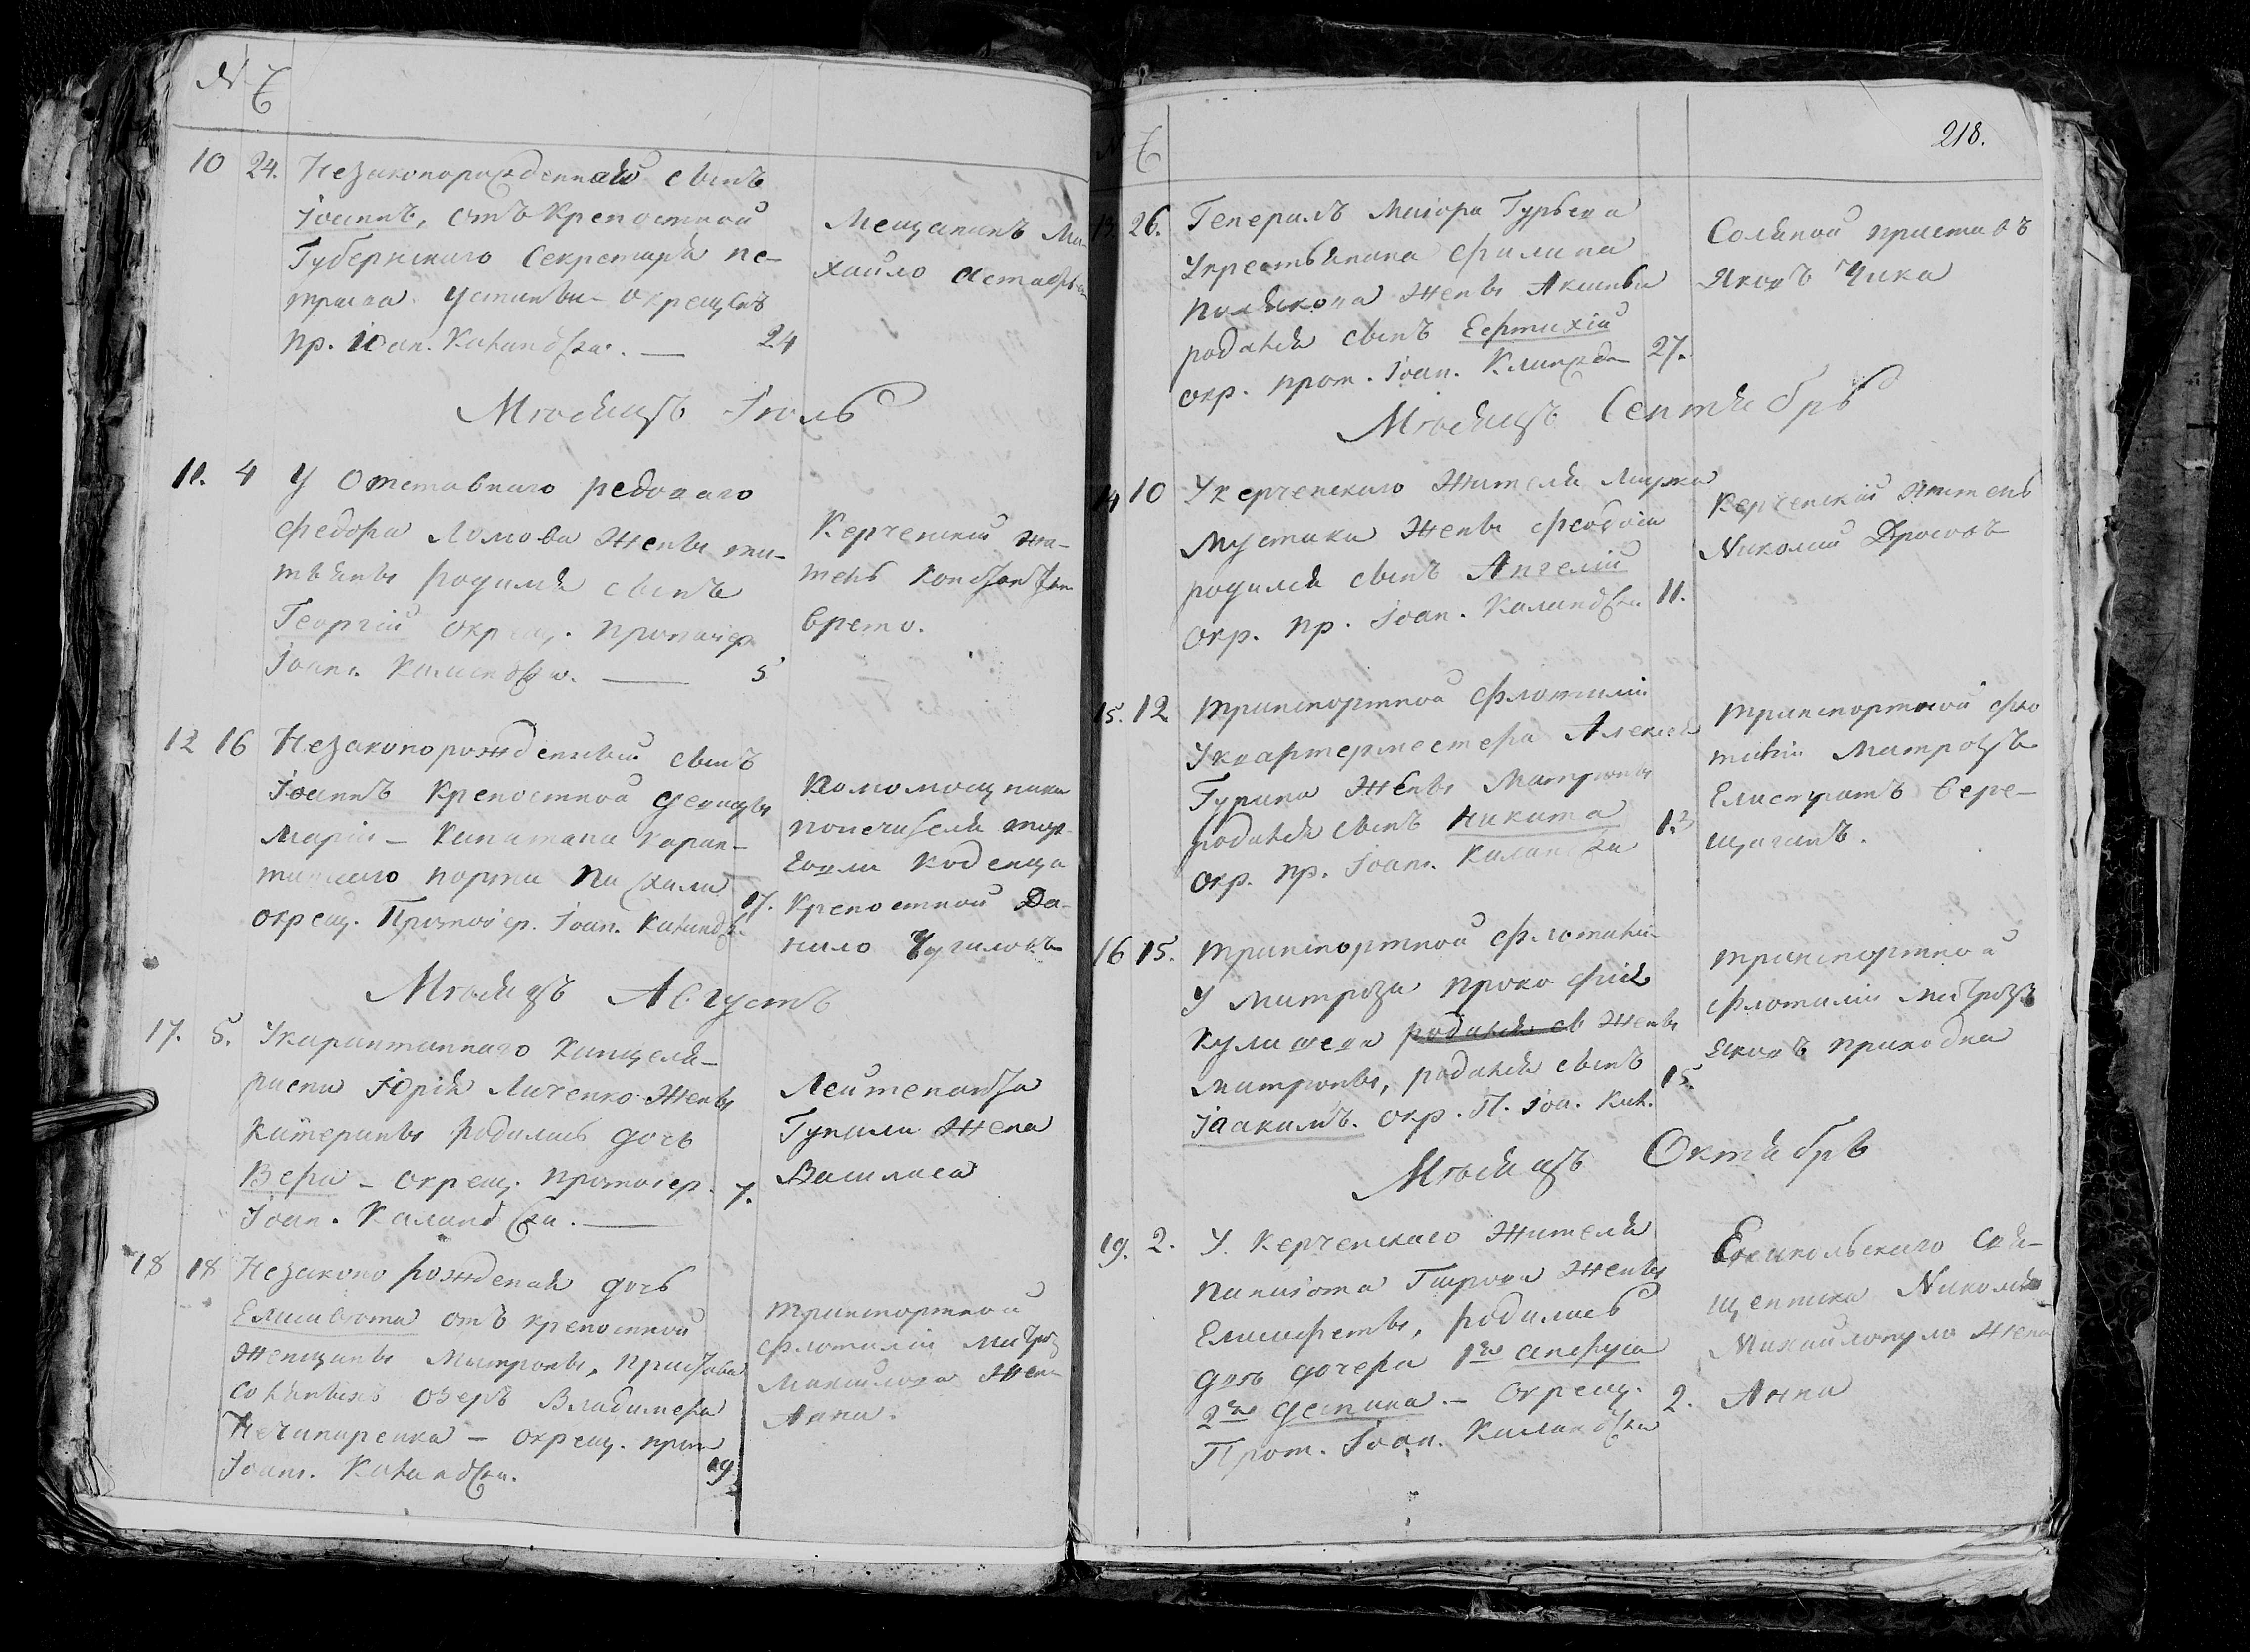 10 24. Незаконорожденный сынъ
Іоаннъ, отъ Крепостной
Губернскаго Секретаря пе-
Устиньи - окрещенъ
пр. Іоан. 24
Мещанинъ Ми-
хайло
Мѣсяцъ Іюль
11. 4 У отставнаго редоваго
Федора Ломова жены
родился сынъ
Георгій окрещ.
Іоан. 5
Керченский жи-
тель
Врето.
12 16 Незаконорожденный сынъ
Іоаннъ Крепостной девицы
Маріи - Капитана каран-
порта
окрещ. Протоіер. Іоан. 17.
попечителя тор-
говли Коденца
Крепостной Да-
нило Чугиловъ
Мѣсяцъ Августъ
17. 5. Укарантиннаго канцеля-
риста Юрія Личенко жены
Катерины родилась дочь
Вера - окрещ. протоіер. 7.
Іоан. Каланджи.
Лейтенанта
жена
Василиса
18 18 Незаконо рожденая дочь
отъ крепостной
женщины Матроны, приства
соляныхъ озеръ Владимера
Нечипаренка - окрещ. прот
Іоан. 19.
транспортной
флотиліи матроз
Максимова жена
Анна.
218.
13 26. Генералъ Маіора Гурьева
Укрестьянина Филипа
Полякова жены Аксиньи
родился сынъ Евтихій
окр. прот. Іоан. 27.
Соляной приставъ
Яковъ Чика
Мѣсяцъ Сентябрь
14 10 Укерченскаго жителя
Мустаки жены Феодосіи
родился сынъ Ангелій
окр. пр. Іоан. Каланджи 11.
Керченскій житель
Николай Дросовъ
15. 12. транспортной флотиліи
Уквартерместера Алексея
Гурина жены Матроны
родился сынъ Никита
окр. пр. Іоан. Каланджи 13
транспортной фло
тиліи матрозъ
Елистратъ Вере-
щагинъ.
16 15. транспортной флотиліи
У матроза прокофія
Кулишева жены
Матроны, родился сынъ
Іоакимъ. окр. П. Іоа. Кал. 15.
транспортной
флотиліи матрозъ
Яковъ приходка
Мѣсяцъ Октябрь
19. 2. У керченскаго жителя
Панаіота жены
Елисафеты, родились
две дочери 1я
2я Деспина. - окрещ. 2.
Прот. Іоан. Каланджи
Еникольскаго свя-
щенника Николая
Михаилопуло жена
Анна